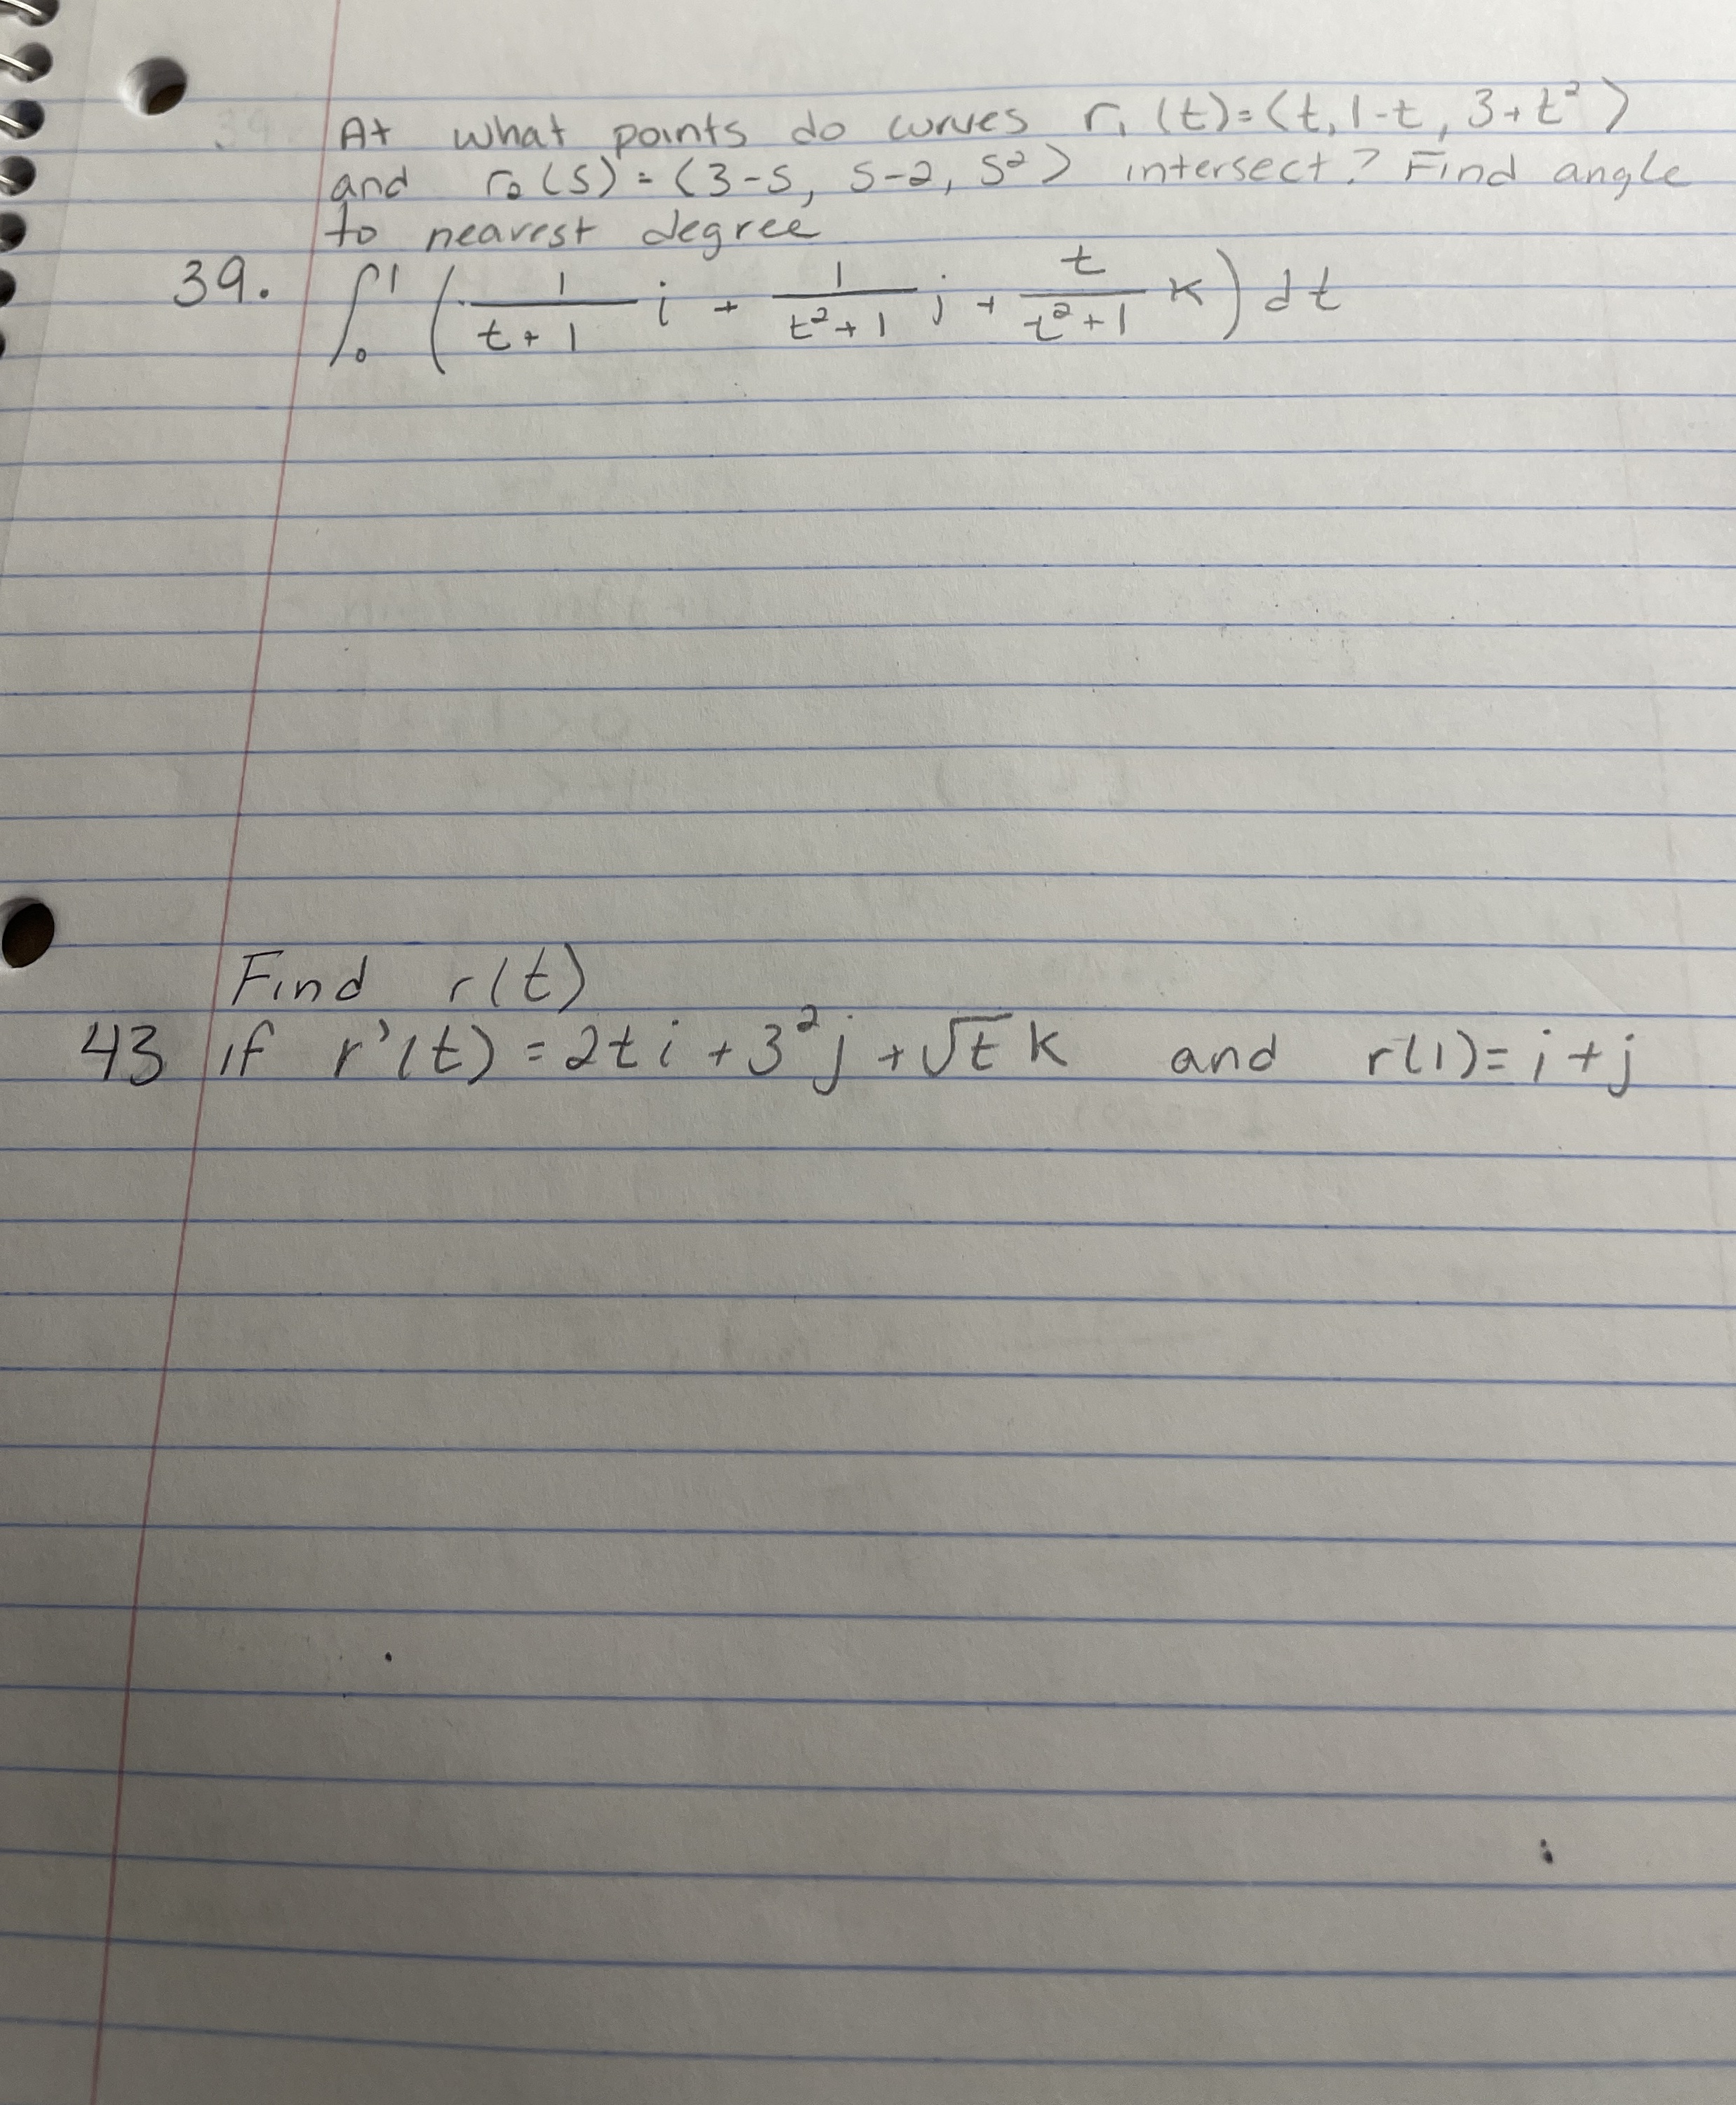 At what points do curves r₁(t)=⟨t, 1-t, 3+t²⟩
and r₂(s)=⟨3-s, s-2, s²⟩ intersect? Find angle
to nearest degree
39. ∫₀¹ (1/(t+1) i + 1/(t²+1) j + t/(t²+1) k) dt
Find r(t)
43 if r'(t)=2ti+3²j+√t k and r(1)=i+j